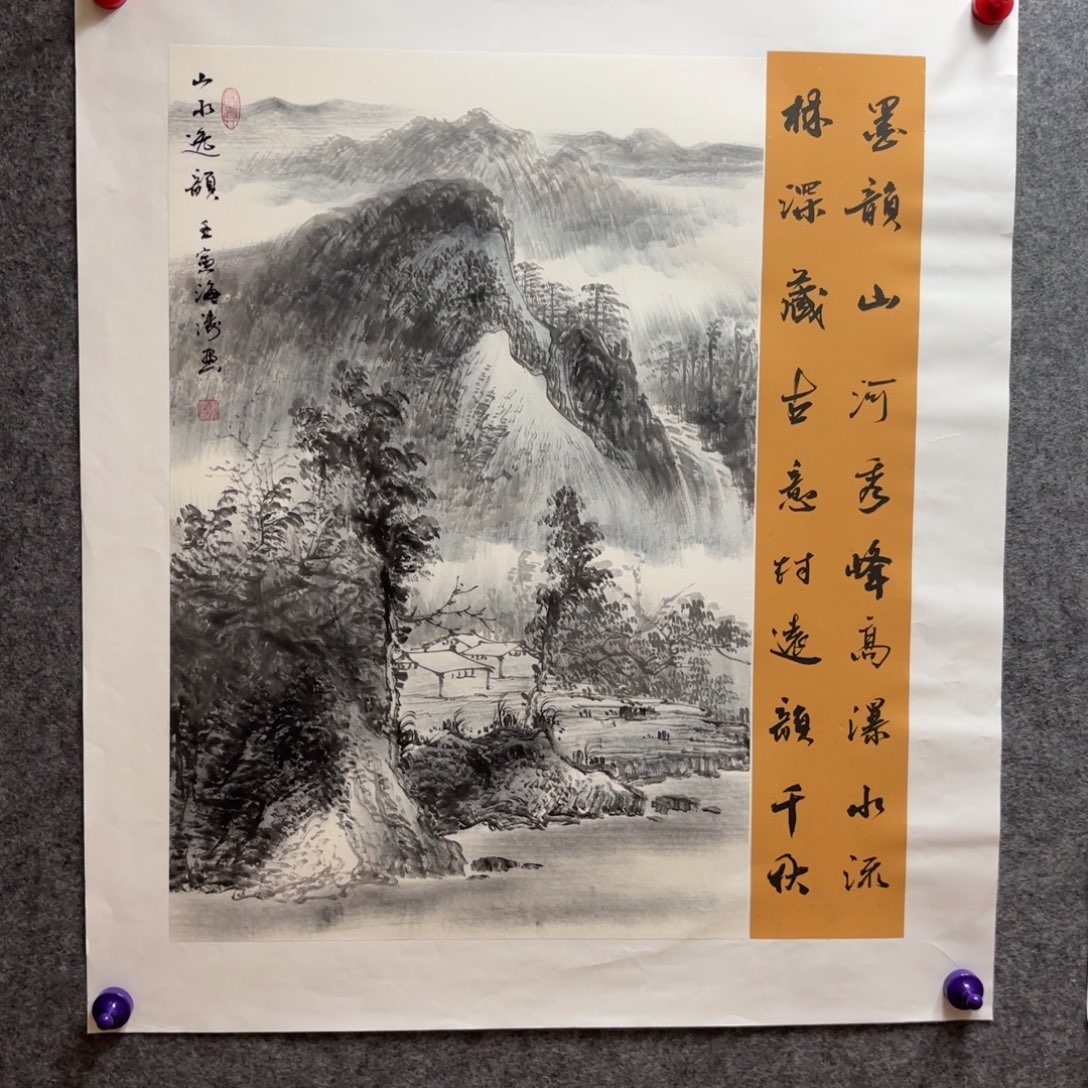 墨韵山河秀峰高瀑水流
林深藏古意村遠韻千秋
山水逸韻 壬寅海涛画